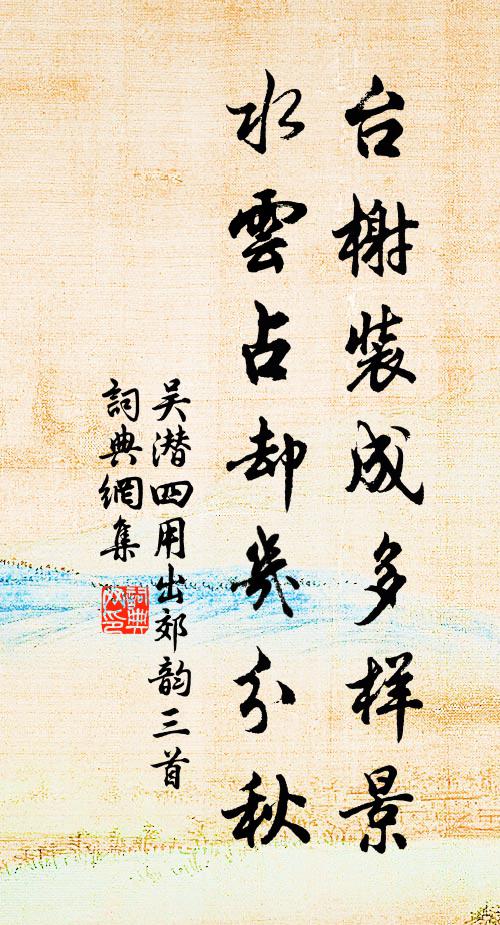 台榭装成多样景
水雲占却幾分秋
吴潜四用出郊韵三首
詞典網集